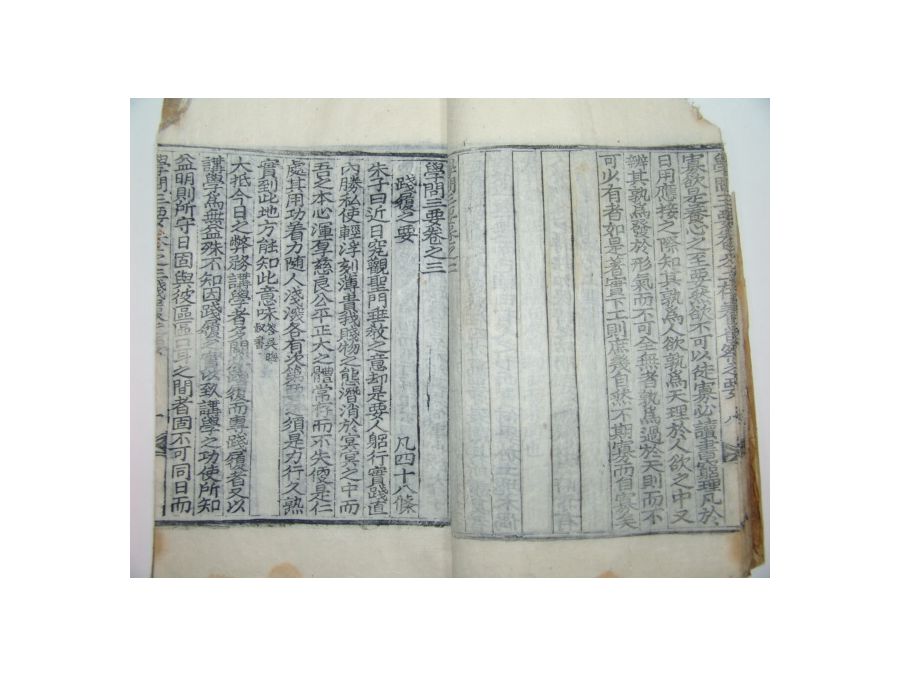 寡欲是養心之至要然欲不可以徒寡必讀書窮理凡於
日用應接之際知其孰爲人欲孰爲天理於人欲之中又
辨其孰爲發於形氣而不可全無者孰爲過於天則而不
可少有者如是着實下工則庶幾自然不期寡而自寡矣
學問三要卷之三
踐履之要 凡四十八條
朱子曰近日究觀聖門垂敎之意却是要人躬行實踐直
內勝私使輕浮刻薄貴我賤物之態潛消於冥冥之中而
吾之本心渾厚慈良公平正大之體常存而不失便是仁
處其用功着力隨人淺深各有次第要之須是力行久熟
實到此地方能知此意味答吳晦叔書
大抵今日之弊務講學者多闕於踐履而專踐履者又以
講學爲無益殊不知因踐履之實以致講學之功使所知
益明則所守日固與彼區區口耳之間者固不可同日而